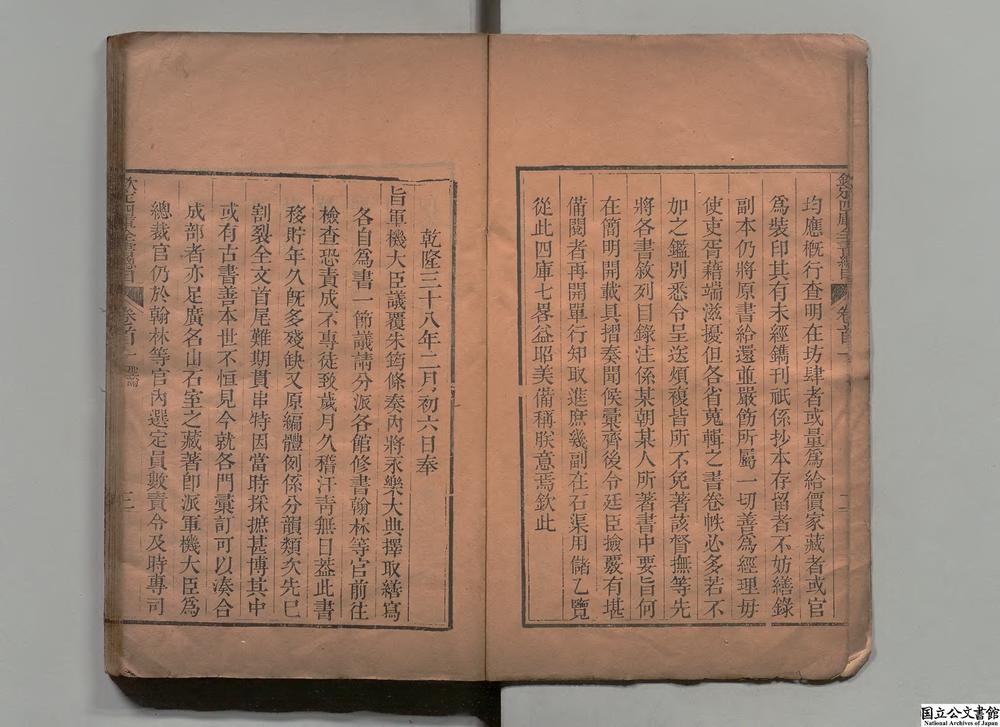 均應槪行查明在坊肆者或量爲給價家藏者或官
爲裝印其有未經鐫刊祇係抄本存留者不妨繕錄
副本仍將原書給還並嚴飭所屬一切善爲經理毋
使吏胥藉端滋擾但各省蒐輯之書卷帙必多若不
加之鑑別悉令呈送煩複皆所不免著該督撫等先
將各書敘列目錄注係某朝某人所著書中要旨何
在簡明開載具摺奏聞候彚齊後令廷臣撿覈有堪
備閱者再開單行知取進庶幾副在石渠用儲乙覽
從此四庫七畧益昭美備稱朕意焉欽此
乾隆三十八年二月初六日奉
旨軍機大臣議覆朱筠條奏內將永樂大典擇取繕寫
各自爲書一節議請分派各館修書翰林等官前往
檢查恐責成不專徒致歲月久稽汗靑無日葢此書
移貯年久旣多殘缺又原編體例係分韻類次先已
割裂全文首尾難期貫串特因當時採摭甚博其中
或有古書善本世不恒見今就各門彚訂可以湊合
成部者亦足廣名山石室之藏著卽派軍機大臣爲
總裁官仍於翰林等官內選定員數責令及時專司
欽定四庫全書總目
卷首一
三
国立公文書館
National Archives of Japan